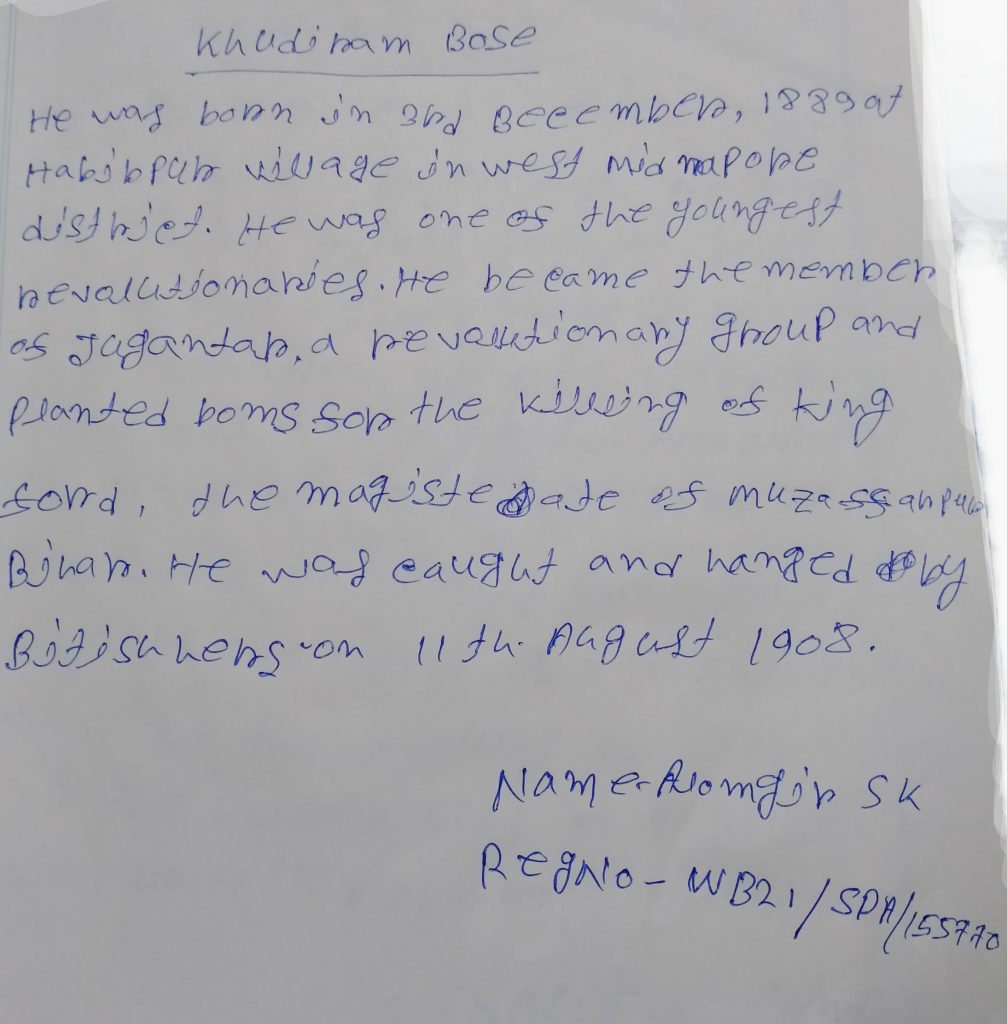 Khudiram Bose
He was born in 3rd Beeember, 1889 at
Habibpur village in west midnapore
district. He was one of the youngest
revalutionaries. He became the member
of Jugantar, a revalutionary group and
planted boms for the killing of king
ford, the magisterate of muzaffarpur
Bihar. He was caught and hanged by
Bitishhers on 11 th. August 1908.
Name- Alomgir SK
RegNo - WB21/SDA/155770